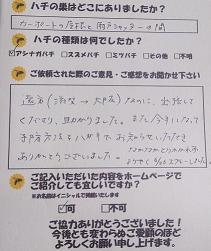 ハチの巣はどこにありましたか？
カーポートの屋根と雨戸シャッターの間
ハチの種類は何でしたか？
☑アシナガバチ □スズメバチ □ミツバチ □その他 □不明
ご依頼された際のご意見・ご感想をお聞かせ下さい
遠方(滋賀→大阪)なのに、お越して
くださり、助かりました。また今年になって
ハガキでお知らせいただき
ありがとうございました。
ご記入いただいた内容をホームページで
ご紹介しても宜しいですか？
※お名前はイニシャルで掲載いたします
☑可 □不可
ご協力ありがとうございました！
今後とも変わらぬご愛顧のほど
よろしくお願い申し上げます。